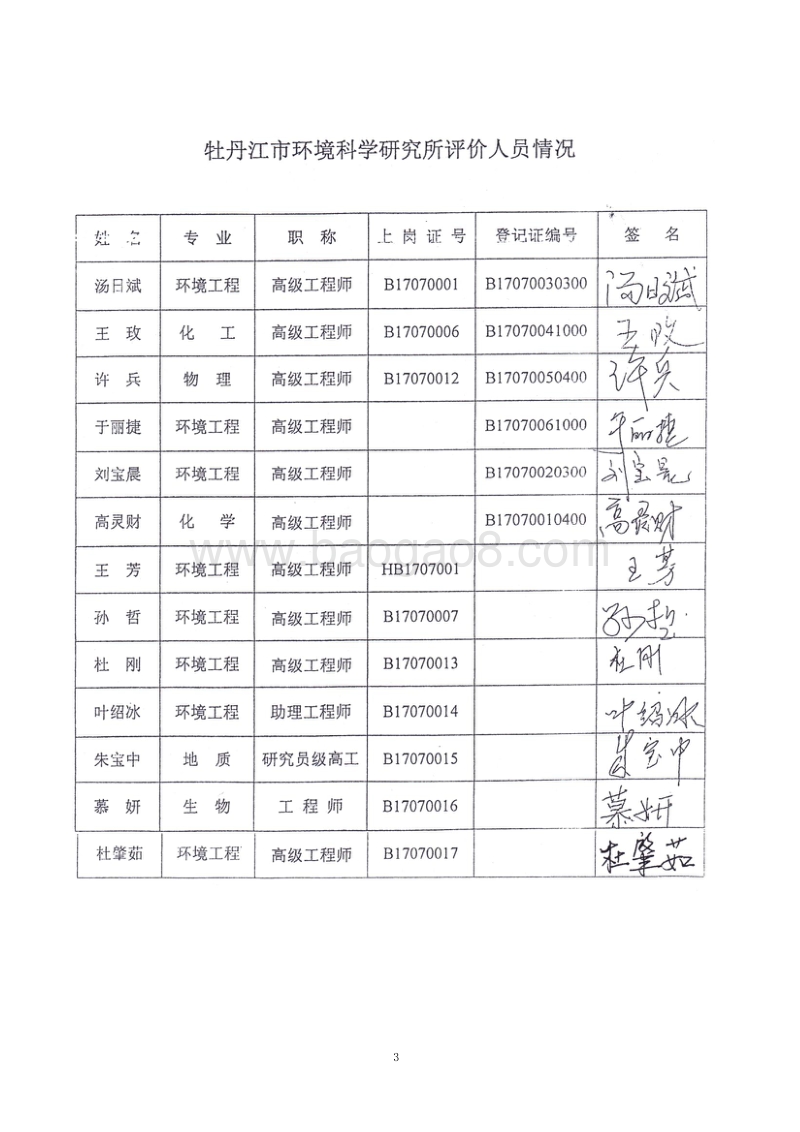 牡丹江市环境科学研究所评价人员情况
姓 名 专 业 职 称 上岗证号 登记证编号 签 名
汤日斌 环境工程 高级工程师 B17070001 B17070030300 汤日斌
王 玫 化 工 高级工程师 B17070006 B17070041000 王玫
许 兵 物 理 高级工程师 B17070012 B17070050400 许兵
于丽捷 环境工程 高级工程师 B17070061000 于丽捷
刘宝晨 环境工程 高级工程师 B17070020300 刘宝晨
高灵财 化 学 高级工程师 B17070010400 高灵财
www.baogao8.com
王 芳 环境工程 高级工程师 HB1707001 王芳
孙 哲 环境工程 高级工程师 B17070007 孙哲
杜 刚 环境工程 高级工程师 B17070013 杜刚
叶绍冰 环境工程 助理工程师 B17070014 叶绍冰
朱宝中 地 质 研究员级高工 B17070015 朱宝中
慕 妍 生 物 工 程 师 B17070016 慕妍
杜肇茹 环境工程 高级工程师 B17070017 杜肇茹
3